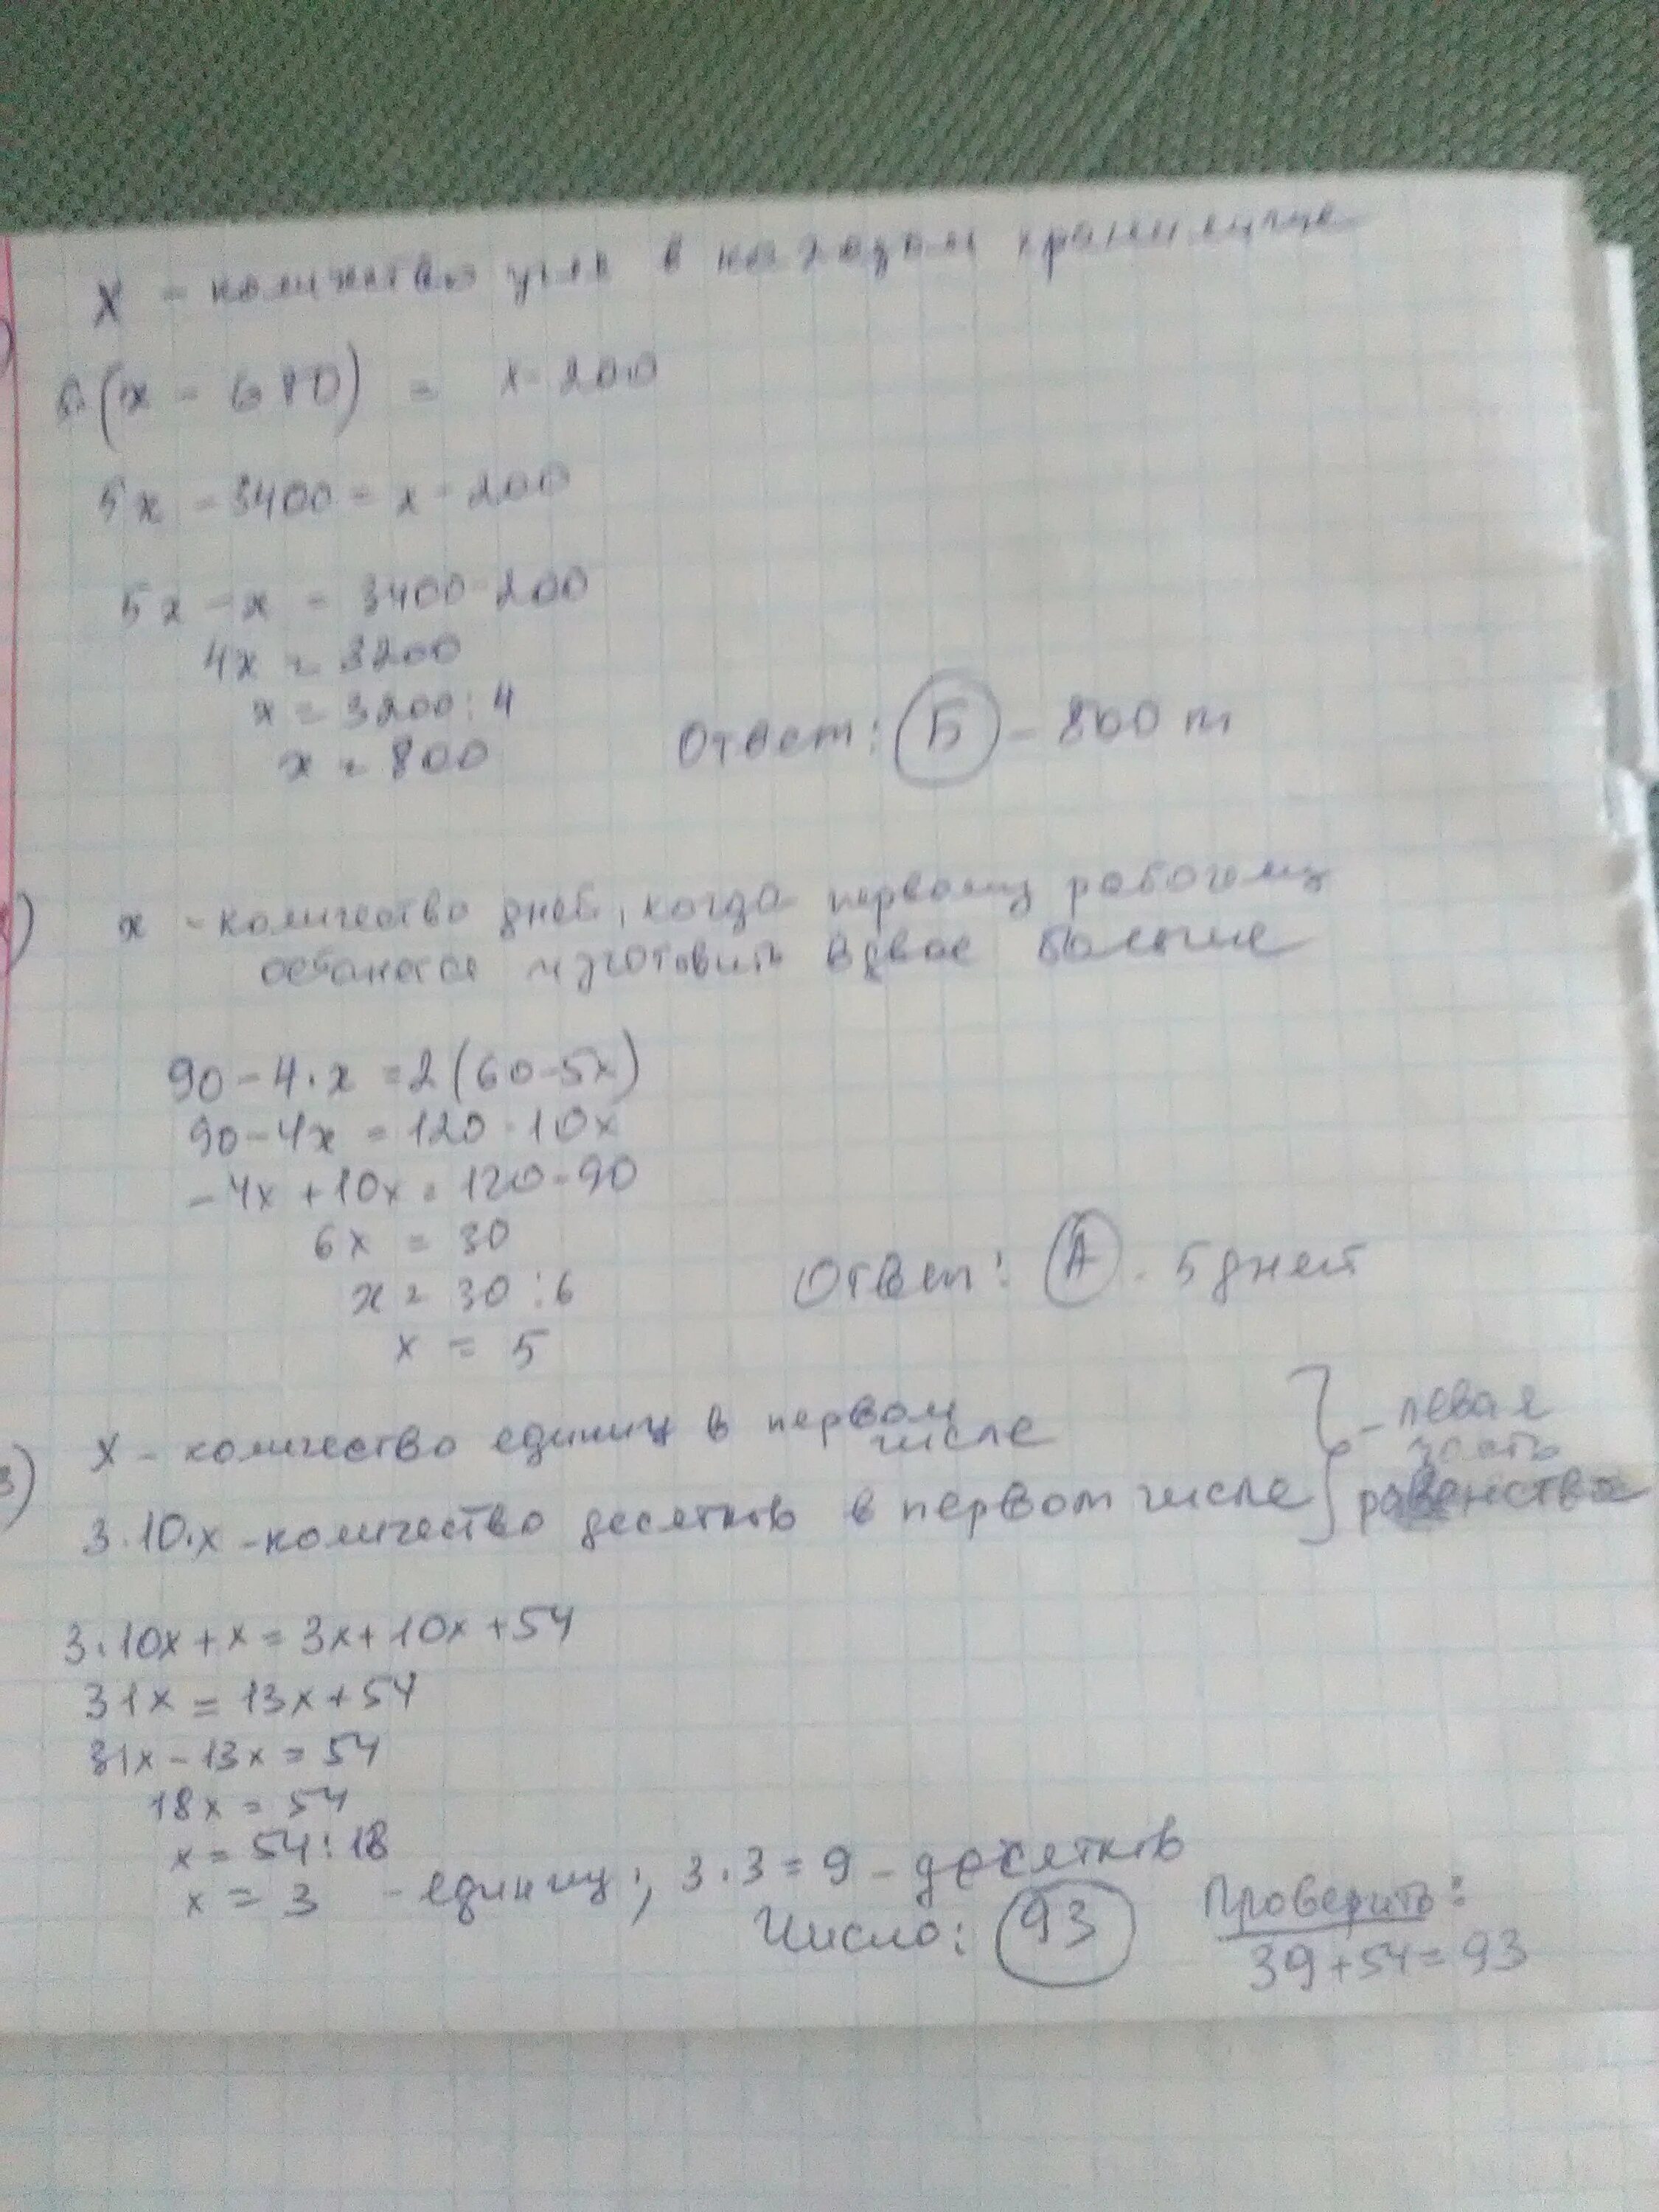 х - количество угля в каждом хранилище
5(х - 680) = х - 200
5х - 3400 = х - 200
5х - х = 3400 - 200
4х = 3200
х = 3200 : 4
х = 800
Ответ: Б - 800 т
х - количество дней, когда первому рабочему
останется изготовить вдвое больше
90 - 4 · х = 2(60 - 5х)
90 - 4х = 120 - 10х
- 4х + 10х = 120 - 90
6х = 30
х = 30 : 6
х = 5
Ответ: А - 5 дней
3) х - количество единиц в первом
числе
3 · 10 · х - количество десятков в первом числе
- левая
часть
равенства
3 · 10х + х = 3х + 10х + 54
31х = 13х + 54
31х - 13х = 54
18х = 54
х = 54 : 18
х = 3 - единиц; 3 · 3 = 9 - десятков
Число: 93
Проверить:
39 + 54 = 93